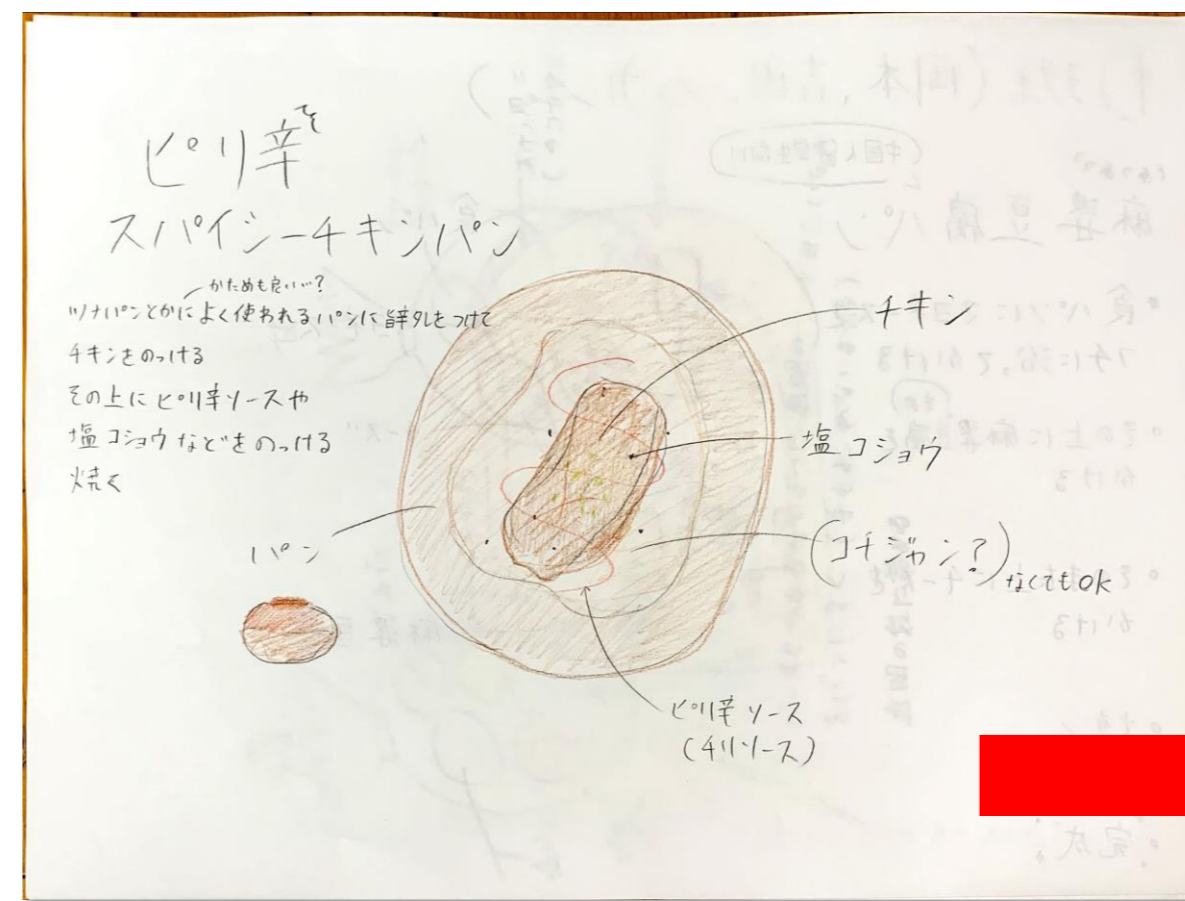 ピリ辛
スパイシーチキンパン
かためも良い…?
ツナパンとかによく使われるパンに旨辛タレをつけて
チキンをのっける
その上にピリ辛ソースや
塩コショウなどをのっける
焼く
チキン
塩コショウ
(コチジャン?)なくてもOK
パン
ピリ辛ソース
(チリソース)